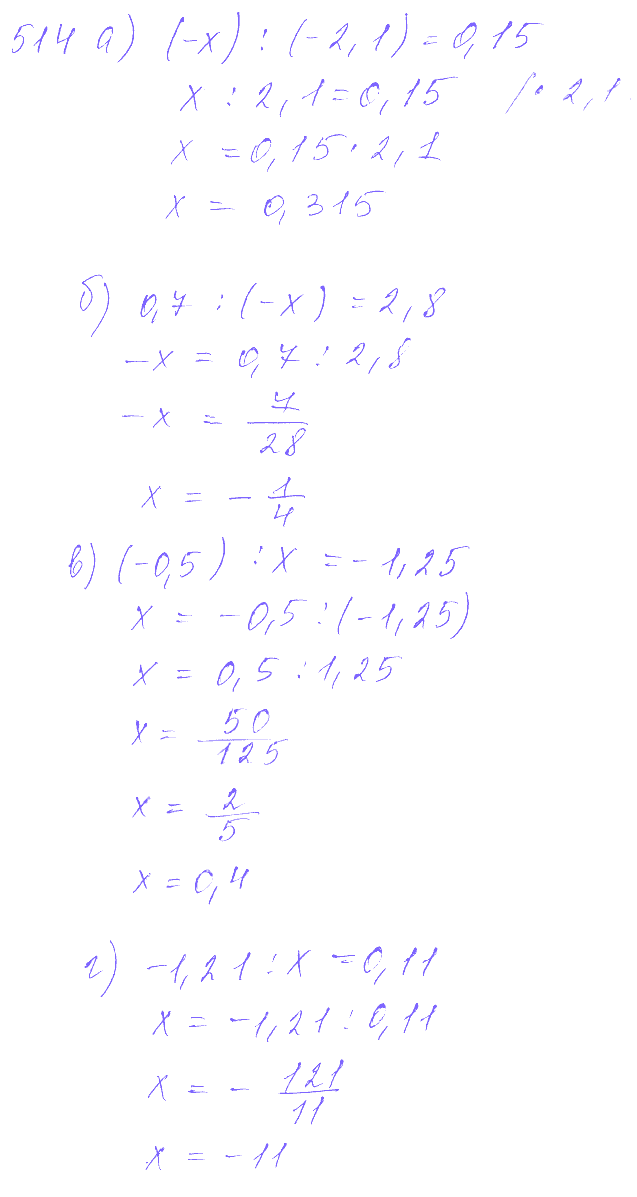 514 а) (-x) : (-2,1) = 0,15
x : 2,1 = 0,15 /· 2,1
x = 0,15 · 2,1
x = 0,315
б) 0,7 : (-x) = 2,8
-x = 0,7 : 2,8
-x = 7/28
x = - 1/4
в) (-0,5) : x = -1,25
x = -0,5 : (-1,25)
x = 0,5 : 1,25
x = 50/125
x = 2/5
x = 0,4
г) -1,21 : x = 0,11
x = -1,21 : 0,11
x = - 121/11
x = -11